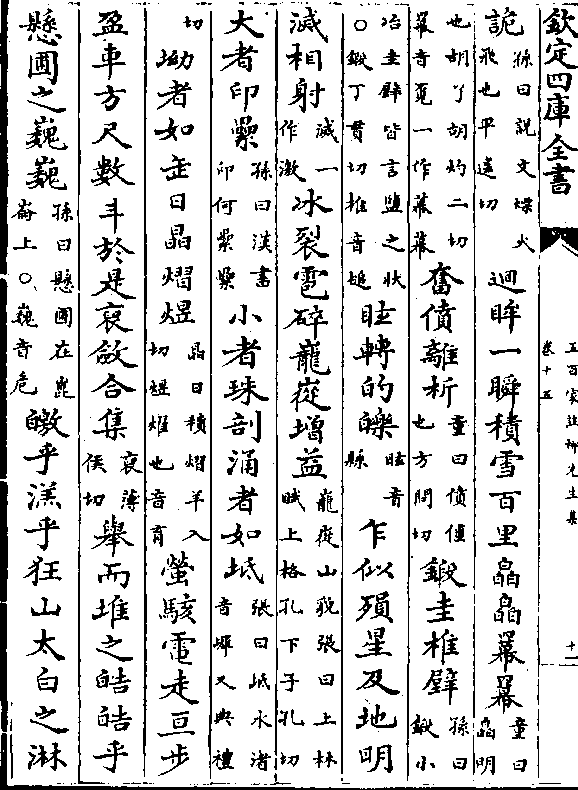 欽定四庫全書
五百家註柳先生集
卷十五
十一
詭孫曰説文熛火飛也平遥切迴眸一瞬積雪百里皛皛羃羃童曰皛明
也胡了胡灼二切羃音覓一作幕幕奮僨離析童曰僨僵也方問切鍛圭椎璧孫曰鍛小
冶圭璧皆言鹽之狀○鍛丁貫切椎音槌眩轉的皪眩音縣乍似殞星及地明
滅相射滅一作激冰裂雹碎巃嵸增益巃嵸山貌張曰上林賦上格孔下子孔切
大者印纍孫曰漢書印何纍纍小者珠剖涌者如坻張曰坻水渚音墀又典禮
切坳者如缶日晶熠煜晶曰積熠羊入切煜燿也音育螢駭電走亘步
盈車方尺數斗於是裒斂合集裒薄侯切舉而堆之皓皓乎
懸圃之巍巍孫曰懸圃在崑崙上○巍音危皦乎溔乎狂山太白之淋